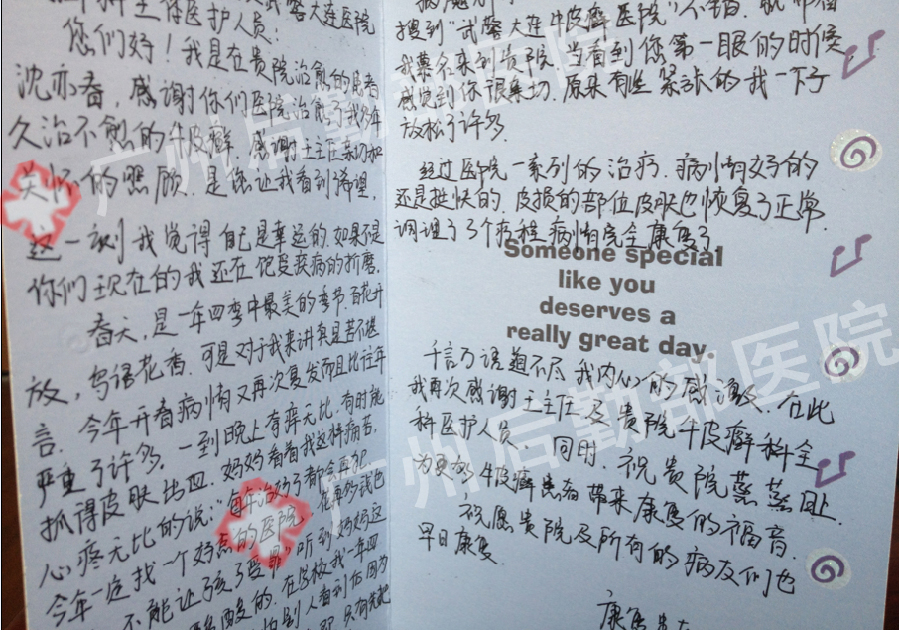 科主任医护人员:
您们好!我是在贵院治愈的患者
沈亦春,感谢你们医院治愈了我多年
久治不愈的牛皮癣,感谢王主任亲切和
关怀的照顾,是您让我看到希望,
这一刻我觉得自己是幸运的.如果不是
你们现在的我还在饱受疾病的折磨.
春天,是一年四季中最美的季节,百花开
放,鸟语花香.可是对于我来讲真是苦不堪
言.今年开春病情又再次复发而且比往年
严重了许多,一到晚上有痒无比,有时能
抓得皮肤出血.妈妈看着我这样痛苦,
心疼无比的说:"每年治好了都会再犯
今年一定找一个好点的医院
不能让孩子受罪"听到妈妈这
搜到"武警大连牛皮癣医院"不错.
我慕名来到贵院.当看到您第一眼的时候
感觉到你很亲切.原来有些紧张的我一下子
放松了许多.
经过医院一系列的治疗.病情好的
还是挺快的.皮损的部位皮肤也恢复了正常.
调理了3个疗程病情完全康复了
Someone special
like you
deserves a
really great day.
千言万语道不尽我内心的感激.在此
我再次感谢王主任及贵院牛皮癣科全
科医护人员.同时.祝贵院蒸蒸日上.
为更多牛皮癣患者带来康复的福音.
祝愿贵院及所有的病友们也
早日康复.
广州后勤部医院
广州后勤部医院